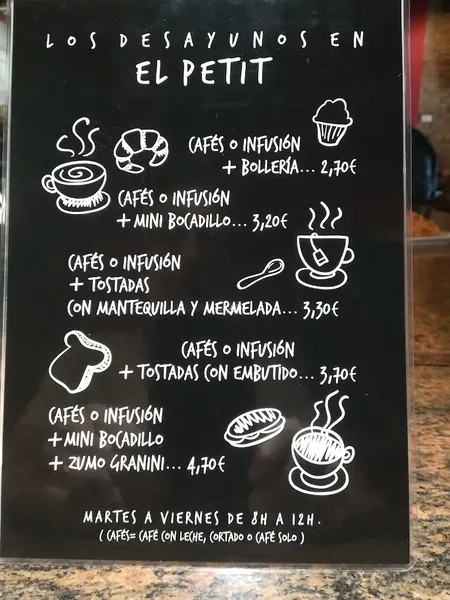 LOS DESAYUNOS EN
EL PETIT
CAFÉS O INFUSIÓN
+ BOLLERÍA... 2,70€
CAFÉS O INFUSIÓN
+ MINI BOCADILLO... 3,20€
CAFÉS O INFUSIÓN
+ TOSTADAS
CON MANTEQUILLA Y MERMELADA... 3,30€
CAFÉS O INFUSIÓN
+ TOSTADAS CON EMBUTIDO... 3,70€
CAFÉS O INFUSIÓN
+MINI BOCADILLO
+ ZUMO GRANINI... 4,70€
MARTES A VIERNES DE 8H A 12H.
( CAFÉS= CAFÉ CON LECHE, CORTADO O CAFÉ SOLO )